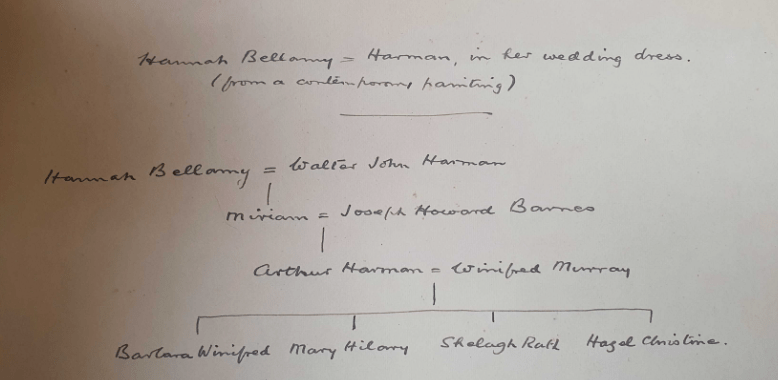 Hannah Bellamy = Harman, in her wedding dress.
(from a contemporary painting)
Hannah Bellamy = Walter John Harman
Miriam = Joseph Howard Barnes
Arthur Harman = Winifred Murray
Barbara Winifred Mary Hilary Shelagh Ruth Hazel Christine.